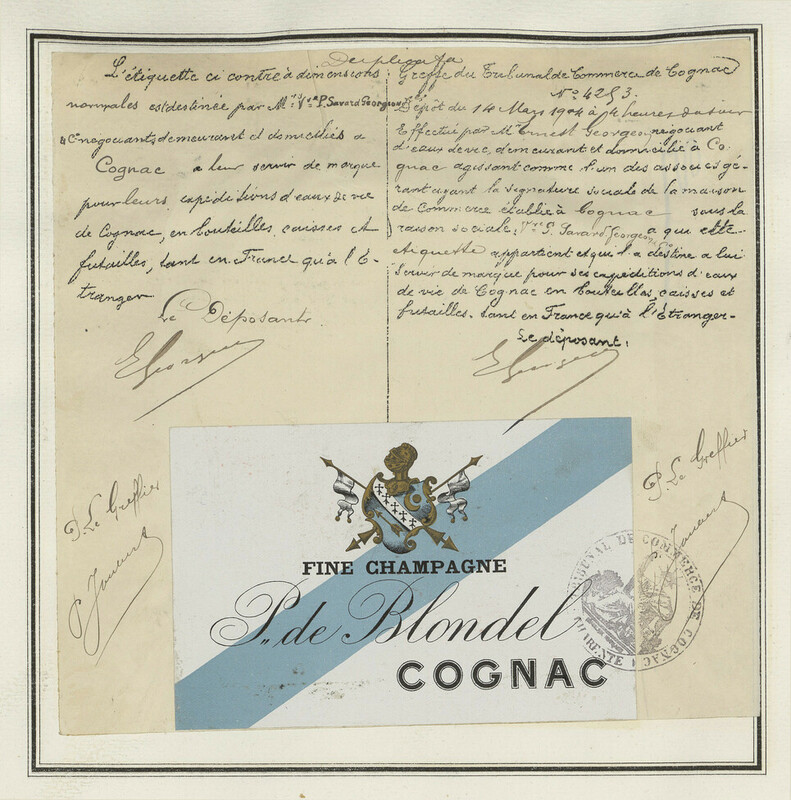 Duplicata
L'étiquette ci contre à dimensions
normales est destinée par Mrs Vve P. Savard Georgeon
& Cie négociants demeurant et domiciliés à
Cognac a leur servir de marque
pour leurs expéditions d'eaux de vie
de Cognac, en bouteilles, caisses et
futailles, tant en France qu'à l'É-
tranger
Le Déposant
E Georgeon
Greffe du Tribunal de Commerce de Cognac
No 4253.
Dépôt du 14 Mars 1904 à heures du soir
Effectué par Mr Ernest Georgeon négociant
d'eaux de vie, demeurant et domicilié à Co-
gnac agissant comme l'un des associés gé-
rant ayant la signature sociale de la maison
de Commerce établie à Cognac sous la
raison sociale: Vve P. Savard, Georgeon & Cie a qui cette
étiquette appartient et qui l'a destine a lui
servir de marque pour ses expéditions d'eaux
de vie de Cognac en bouteilles, caisses et
futailles. tant en France qu'à l'Étranger-
Le déposant:
E Georgeon
P. Le Greffier
P. Le Greffier
FINE CHAMPAGNE
P. de Blondel
COGNAC
TRIBUNAL DE COMMERCE DE COGNAC
CHARENTE